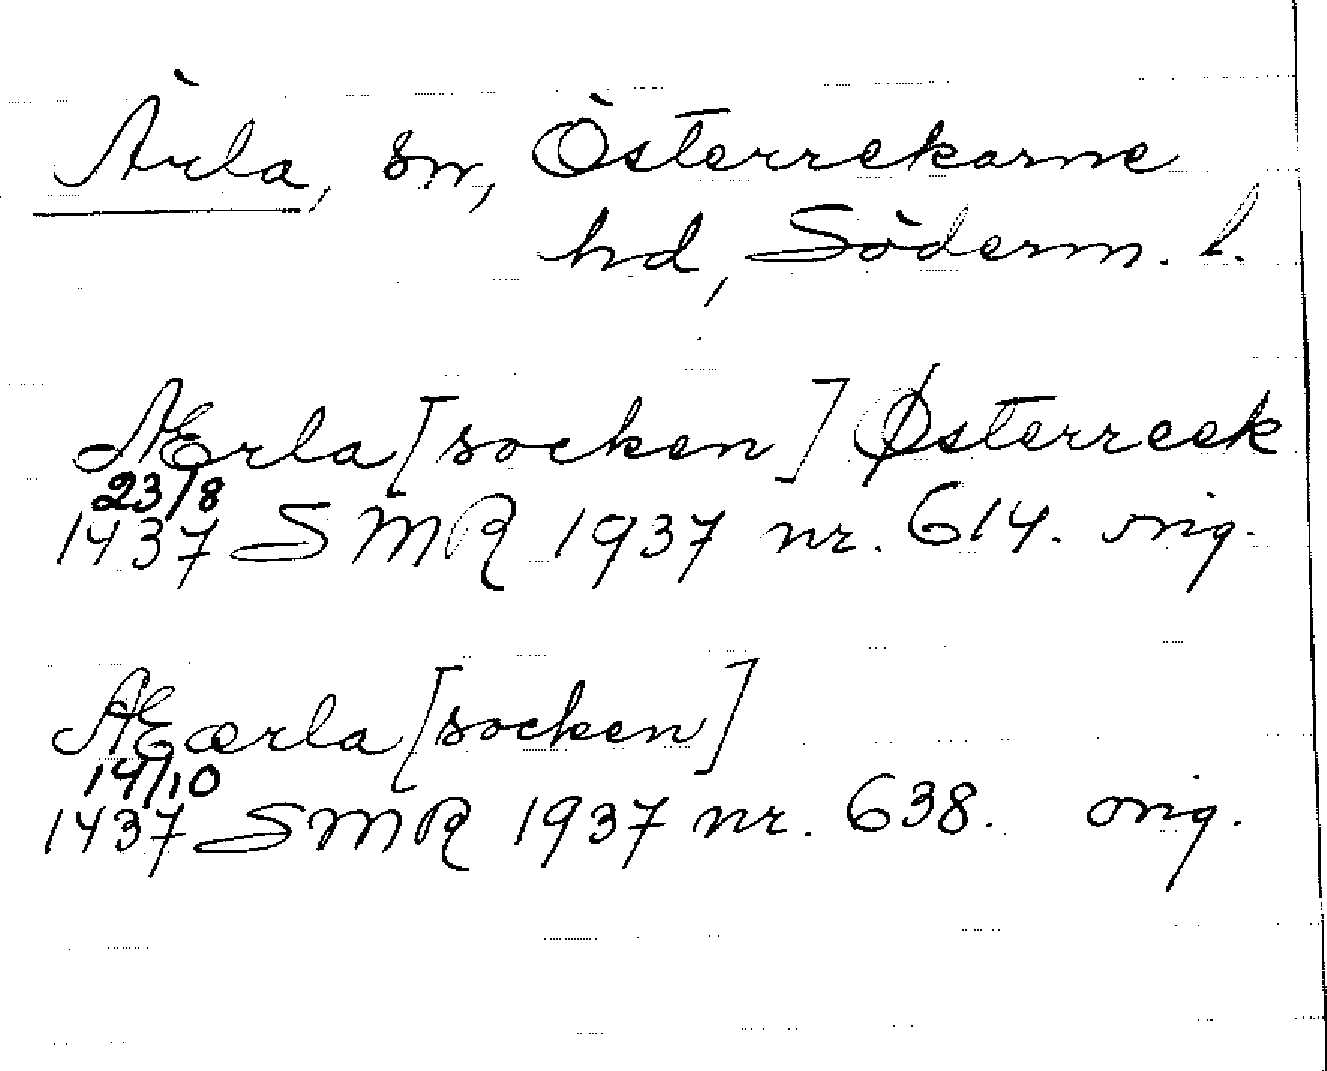 Ärla, sn, Österrekarne
hd, Söderm. l.
AErla [socken] Østerreek
23/8
1437 SMR 1937 nr. 614. orig.
AEærla [socken]
14/10
1437 SMR 1937 nr. 638. orig.